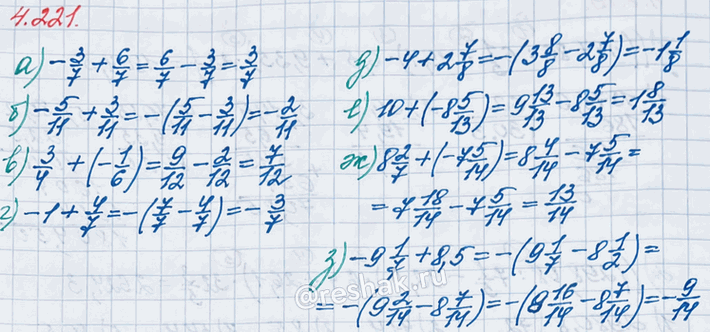 4.221.
а) -3/7 + 6/7 = 6/7 - 3/7 = 3/7
б) -5/11 + 3/11 = -(5/11 - 3/11) = -2/11
в) 3/4 + (-1/6) = 9/12 - 2/12 = 7/12
г) -1 + 4/7 = -(7/7 - 4/7) = -3/7
д) -4 + 2 7/8 = -(3 8/8 - 2 7/8) = -1 1/8
е) 10 + (-8 5/13) = 9 13/13 - 8 5/13 = 1 8/13
ж) 8 2/7 + (-7 5/14) = 8 4/14 - 7 5/14 =
= 7 18/14 - 7 5/14 = 13/14
з) -9 1/7 + 8,5 = -(9 1/7 - 8 1/2) =
= -(9 2/14 - 8 7/14) = -(8 16/14 - 8 7/14) = -9/14
@reshak.ru